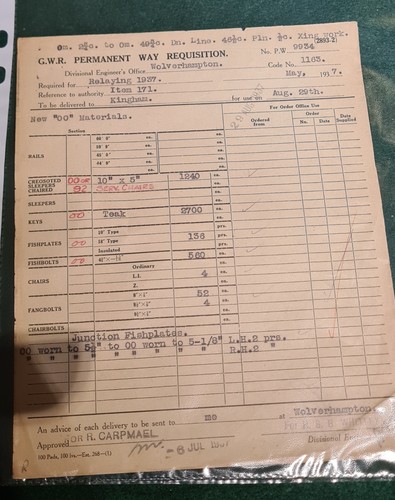 0m. 2¾c. to 0m. 49¾c. Dn. Line. 46½c. Pln. ½c. Xing work.
(2893-2)
G.W.R. PERMANENT WAY REQUISITION.
No. P.W 9934
Divisional Engineer's Office Wolverhampton. Code No. 1163.
Required for Relaying 1937. May, 1937.
Reference to authority Item 171.
To be delivered to Kingham. for use on Aug. 29th.
New "OO" Materials.
For Order Office Use
Section
Ordered from
Order
No.
Date
Date Supplied
RAILS
60' 0" en.
58' 6" en.
45' 0" en.
44' 6" en.
CREOSOTED SLEEPERS CHAIRED OO 10" x 5" 1240 en.
92
SLEEPERS en.
KEYS OO Teak 2700 en.
FISHPLATES OO
18" Type prs.
16" Type 136 prs.
Insulated prs.
FISHBOLTS OO 560 en.
CHAIRS
Ordinary en.
L.1. 4 en.
2. en.
FANGBOLTS
52 en.
4 en.
CHAIRBOLTS
Junction Fishplates.
OO worn to to OO worn to 5-1/8" L.H.2 prs.
" " " " " " " R.H.2 "
An advice of each delivery to be sent to me at Wolverhampton.
Approved FOR R. CARPMAEL
-6 JUL 1937
Divisional Engineer